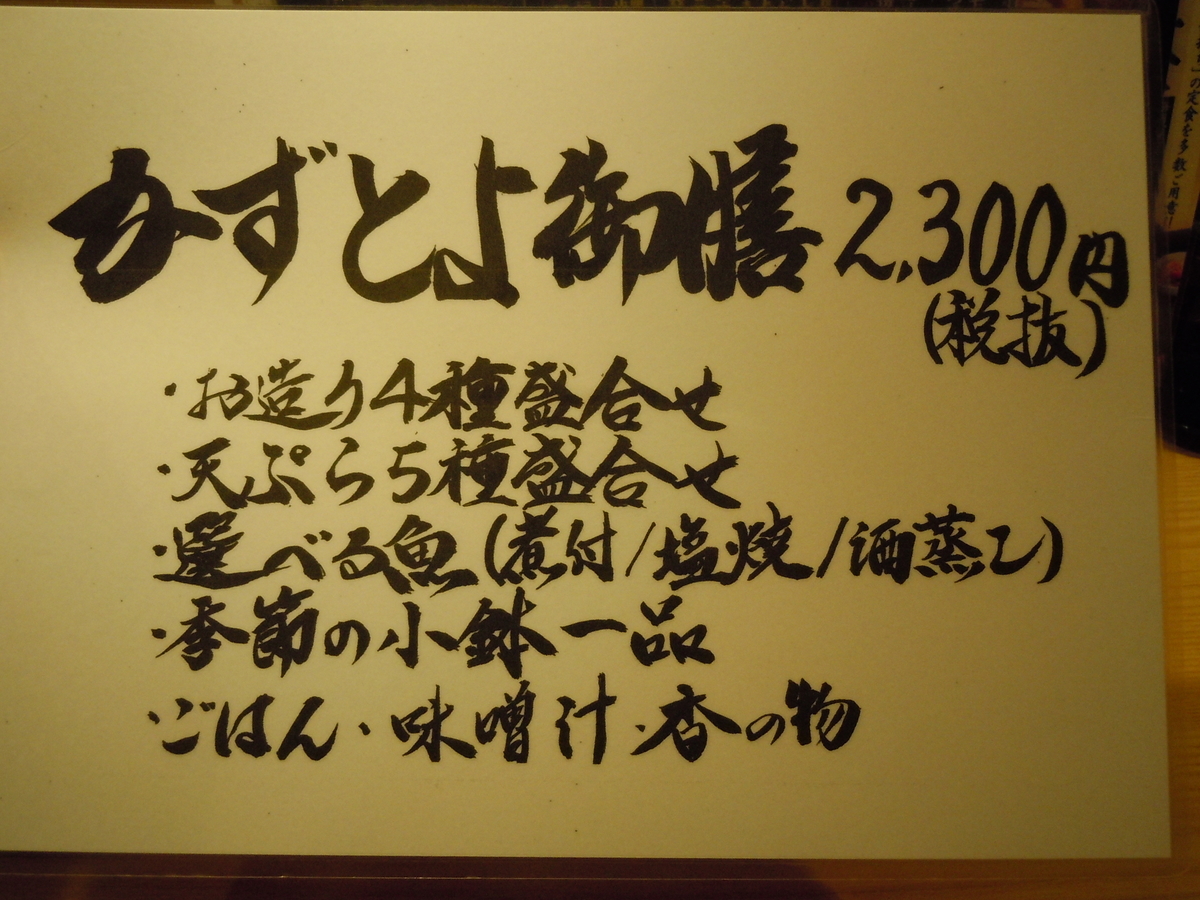 かずとよ御膳 2,300円
(税抜)
・お造り4種盛合せ
・天ぷら5種盛合せ
・選べる魚(煮付/塩焼/酒蒸し)
・季節の小鉢一品
・ごはん・味噌汁・香の物
の定食を多数ご用意!